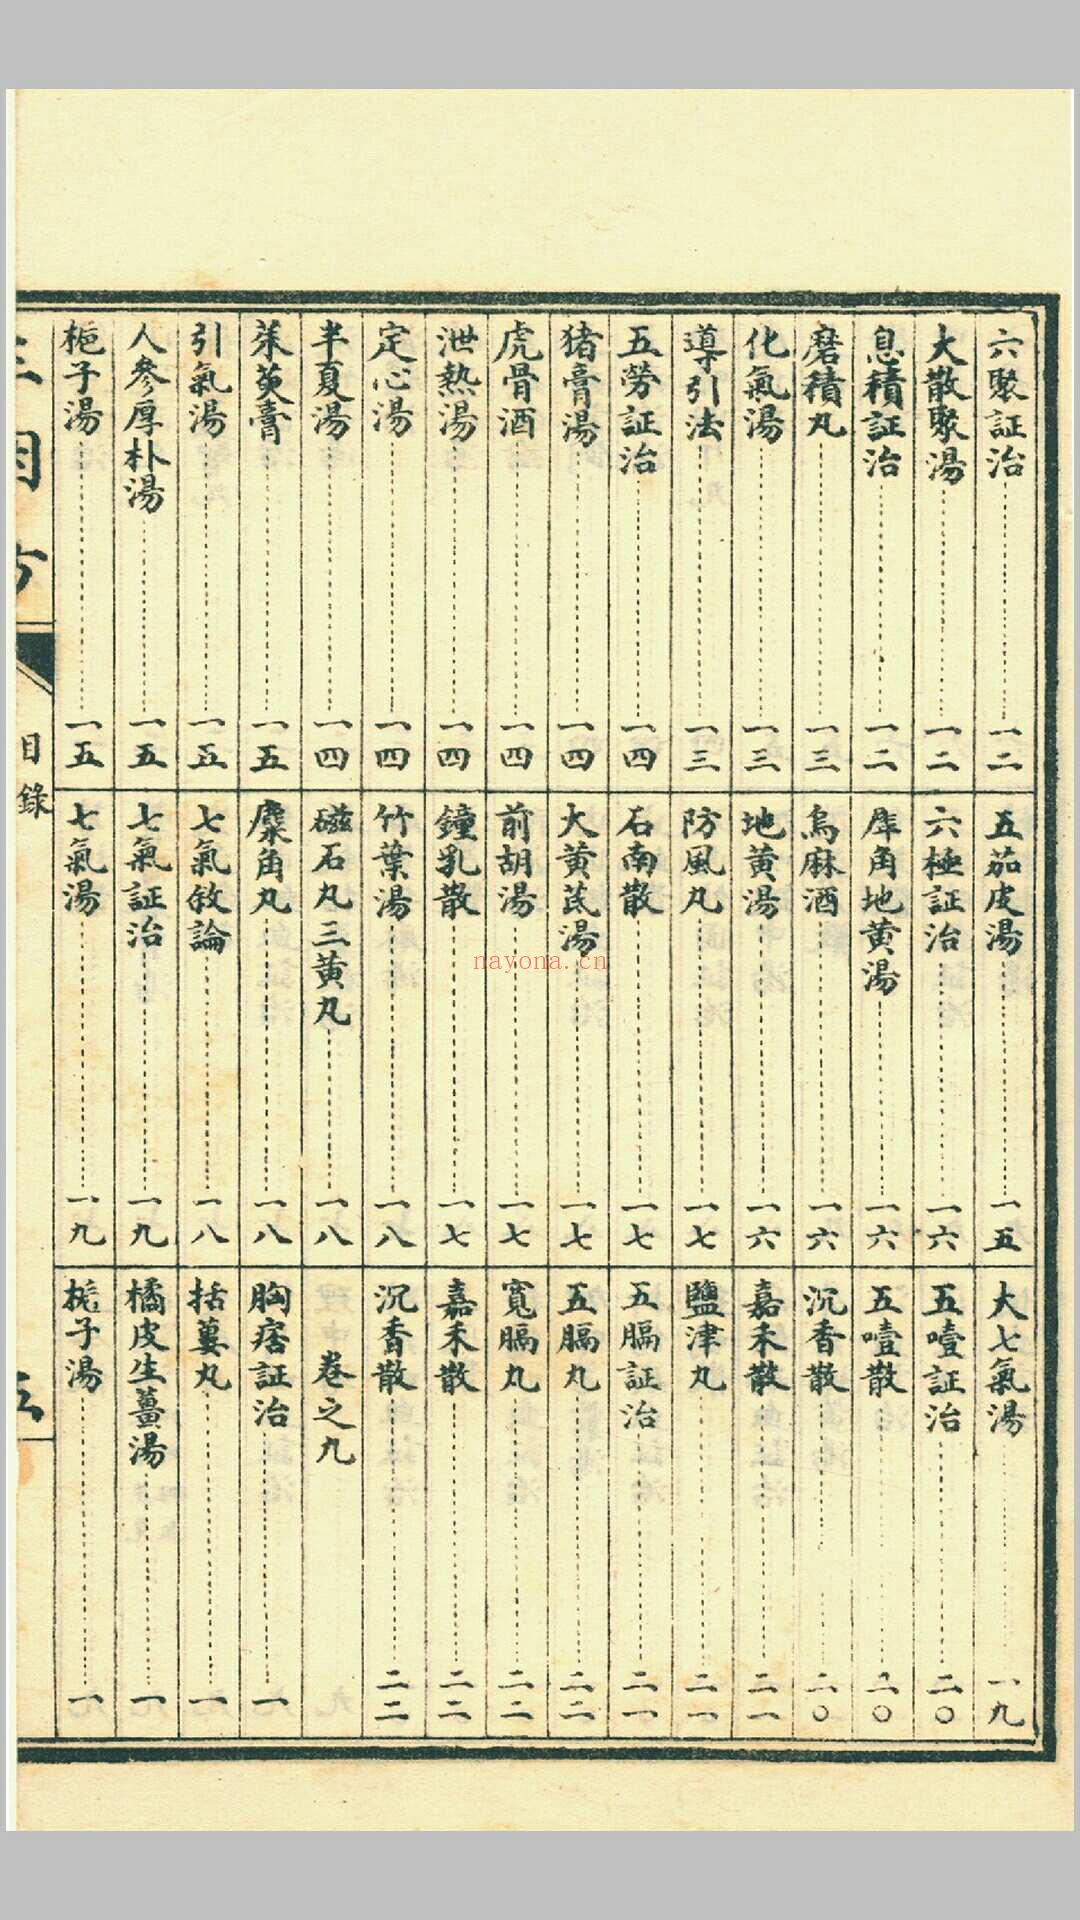 六聚証治……一二
大散聚湯……一二
息積証治……一二
磨積丸……一三
化氣湯……一三
導引法……一三
五勞証治……一四
猪膏湯……一四
虎骨酒……一四
泄熱湯……一四
定心湯……一四
半夏湯……一四
茱萸膏……一五
引氣湯……一五
人參厚朴湯……一五
梔子湯……一五
五茄皮湯……一五
六極証治……一六
犀角地黄湯……一六
烏麻酒……一六
地黄湯……一六
防風丸……一七
石南散……一七
大黄芪湯……一七
前胡湯……一七
鐘乳散……一七
竹葉湯……一八
磁石丸三黄丸……一八
麋角丸……一八
七氣敘論……一八
七氣証治……一九
七氣湯……一九
大七氣湯……一九
五噎証治……二〇
五噎散……二〇
沉香散……二〇
嘉禾散……二一
鹽津丸……二一
五膈証治……二一
五膈丸……二二
寬膈丸……二二
嘉禾散……二二
沉香散……二二
卷之九
胸痞証治……一
括蔞丸……一
橘皮生薑湯……一
梔子湯……一
三因方
目錄
五
nayona.cn